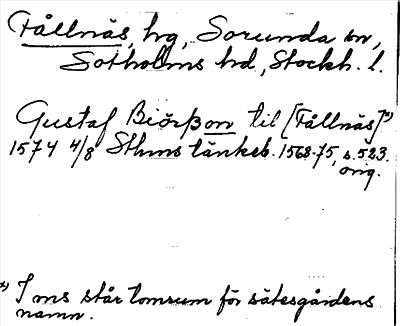 Fållnäs, hg, Sorunda sn,
Sotholms hd, Stockh. l.
Gustaf Biörßon til [Fållnäs]*)
1574 4/8 Sthms tänkeb. 1568-75, s. 523.
orig.
*) I ms står tomrum för sätesgårdens
namn.